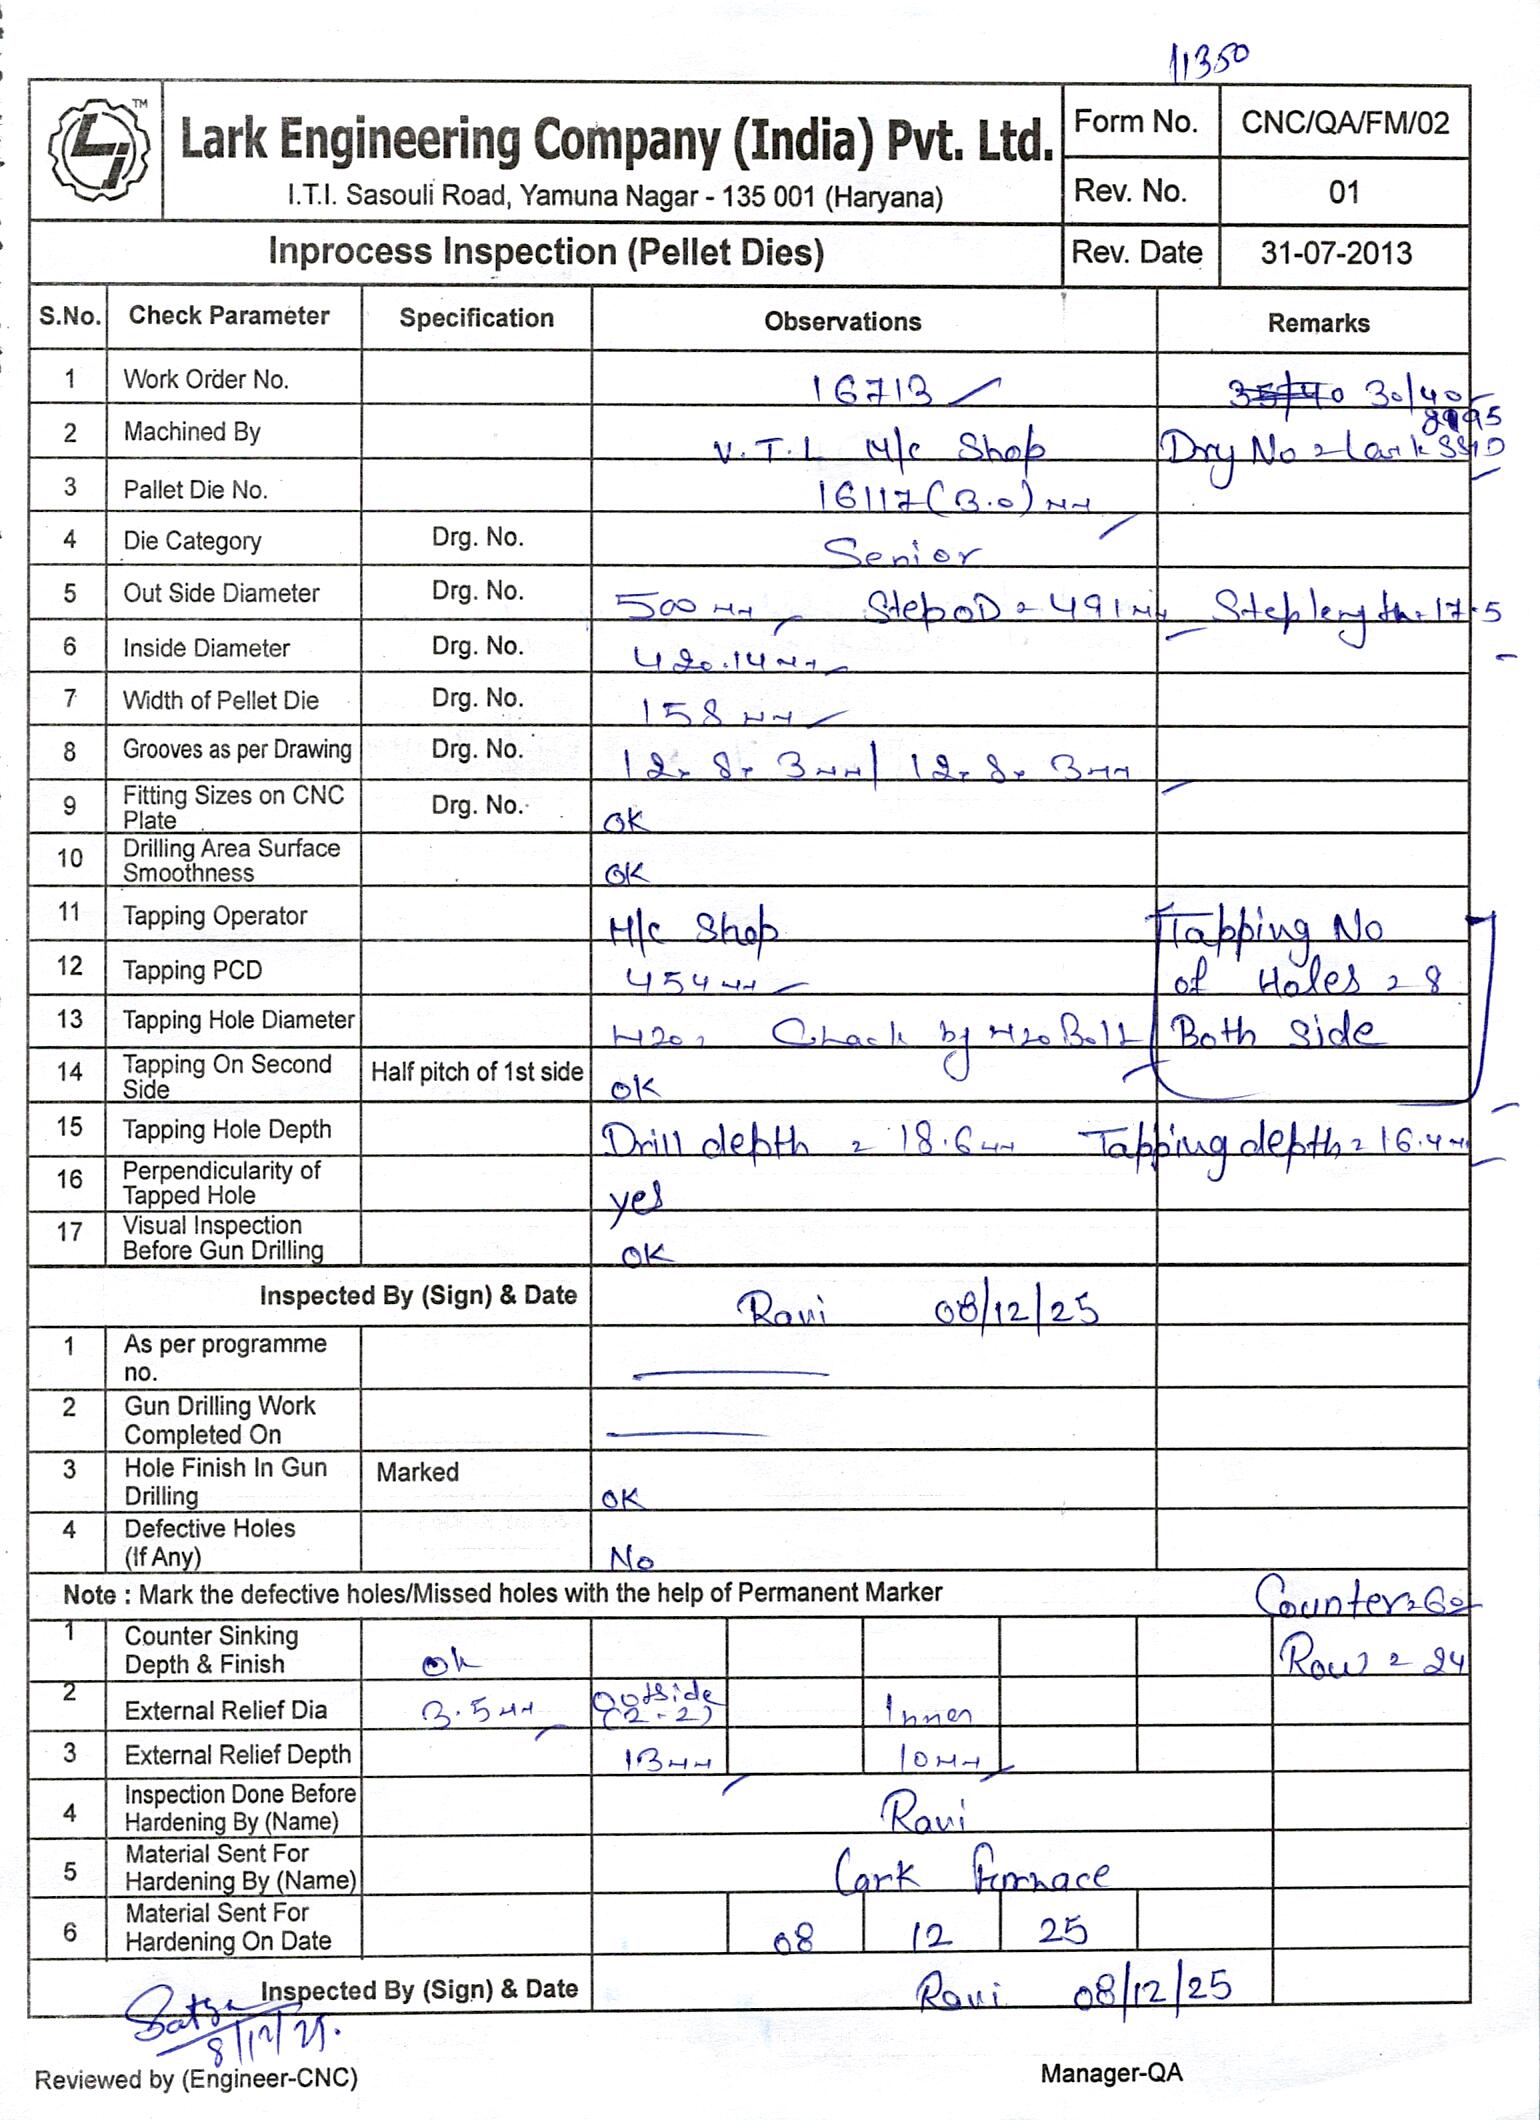 11350
TM
Lark Engineering Company (India) Pvt. Ltd.
I.T.I. Sasouli Road, Yamuna Nagar - 135 001 (Haryana)
Form No. CNC/QA/FM/02
Rev. No. 01
Inprocess Inspection (Pellet Dies) Rev. Date 31-07-2013
S.No. Check Parameter Specification Observations Remarks
1 Work Order No. 16713 30/40
2 Machined By V.T.L M/c Shop Dry No = Lark
3 Pallet Die No. 16117 (3.0) mm
4 Die Category Drg. No. Senior
5 Out Side Diameter Drg. No. 500 mm Step OD = 491 mm Step length = 17.5
6 Inside Diameter Drg. No. 420.14 mm
7 Width of Pellet Die Drg. No. 158 mm
8 Grooves as per Drawing Drg. No. 12 x 8 x 3 mm / 12 x 8 x 3 mm
9 Fitting Sizes on CNC Plate Drg. No. OK
10 Drilling Area Surface Smoothness OK
11 Tapping Operator M/c Shop Tapping No
12 Tapping PCD 454 mm of Holes = 8
13 Tapping Hole Diameter M20, Chack by M20 Bolt Both side
14 Tapping On Second Side Half pitch of 1st side OK
15 Tapping Hole Depth Drill depth = 18.6 mm Tapping depth = 16.4 mm
16 Perpendicularity of Tapped Hole yes
17 Visual Inspection Before Gun Drilling OK
Inspected By (Sign) & Date Ravi 08/12/25
1 As per programme no.
2 Gun Drilling Work Completed On
3 Hole Finish In Gun Drilling Marked OK
4 Defective Holes (If Any) No
Note : Mark the defective holes/Missed holes with the help of Permanent Marker Counter = 60
1 Counter Sinking Depth & Finish Ok Row = 24
2 External Relief Dia 3.5 mm Outside (2-2) Inner
3 External Relief Depth 13 mm 10 mm
4 Inspection Done Before Hardening By (Name) Ravi
5 Material Sent For Hardening By (Name) Lark Furnace
6 Material Sent For Hardening On Date 08 12 25
Inspected By (Sign) & Date Ravi 08/12/25
8/12/25.
Reviewed by (Engineer-CNC) Manager-QA